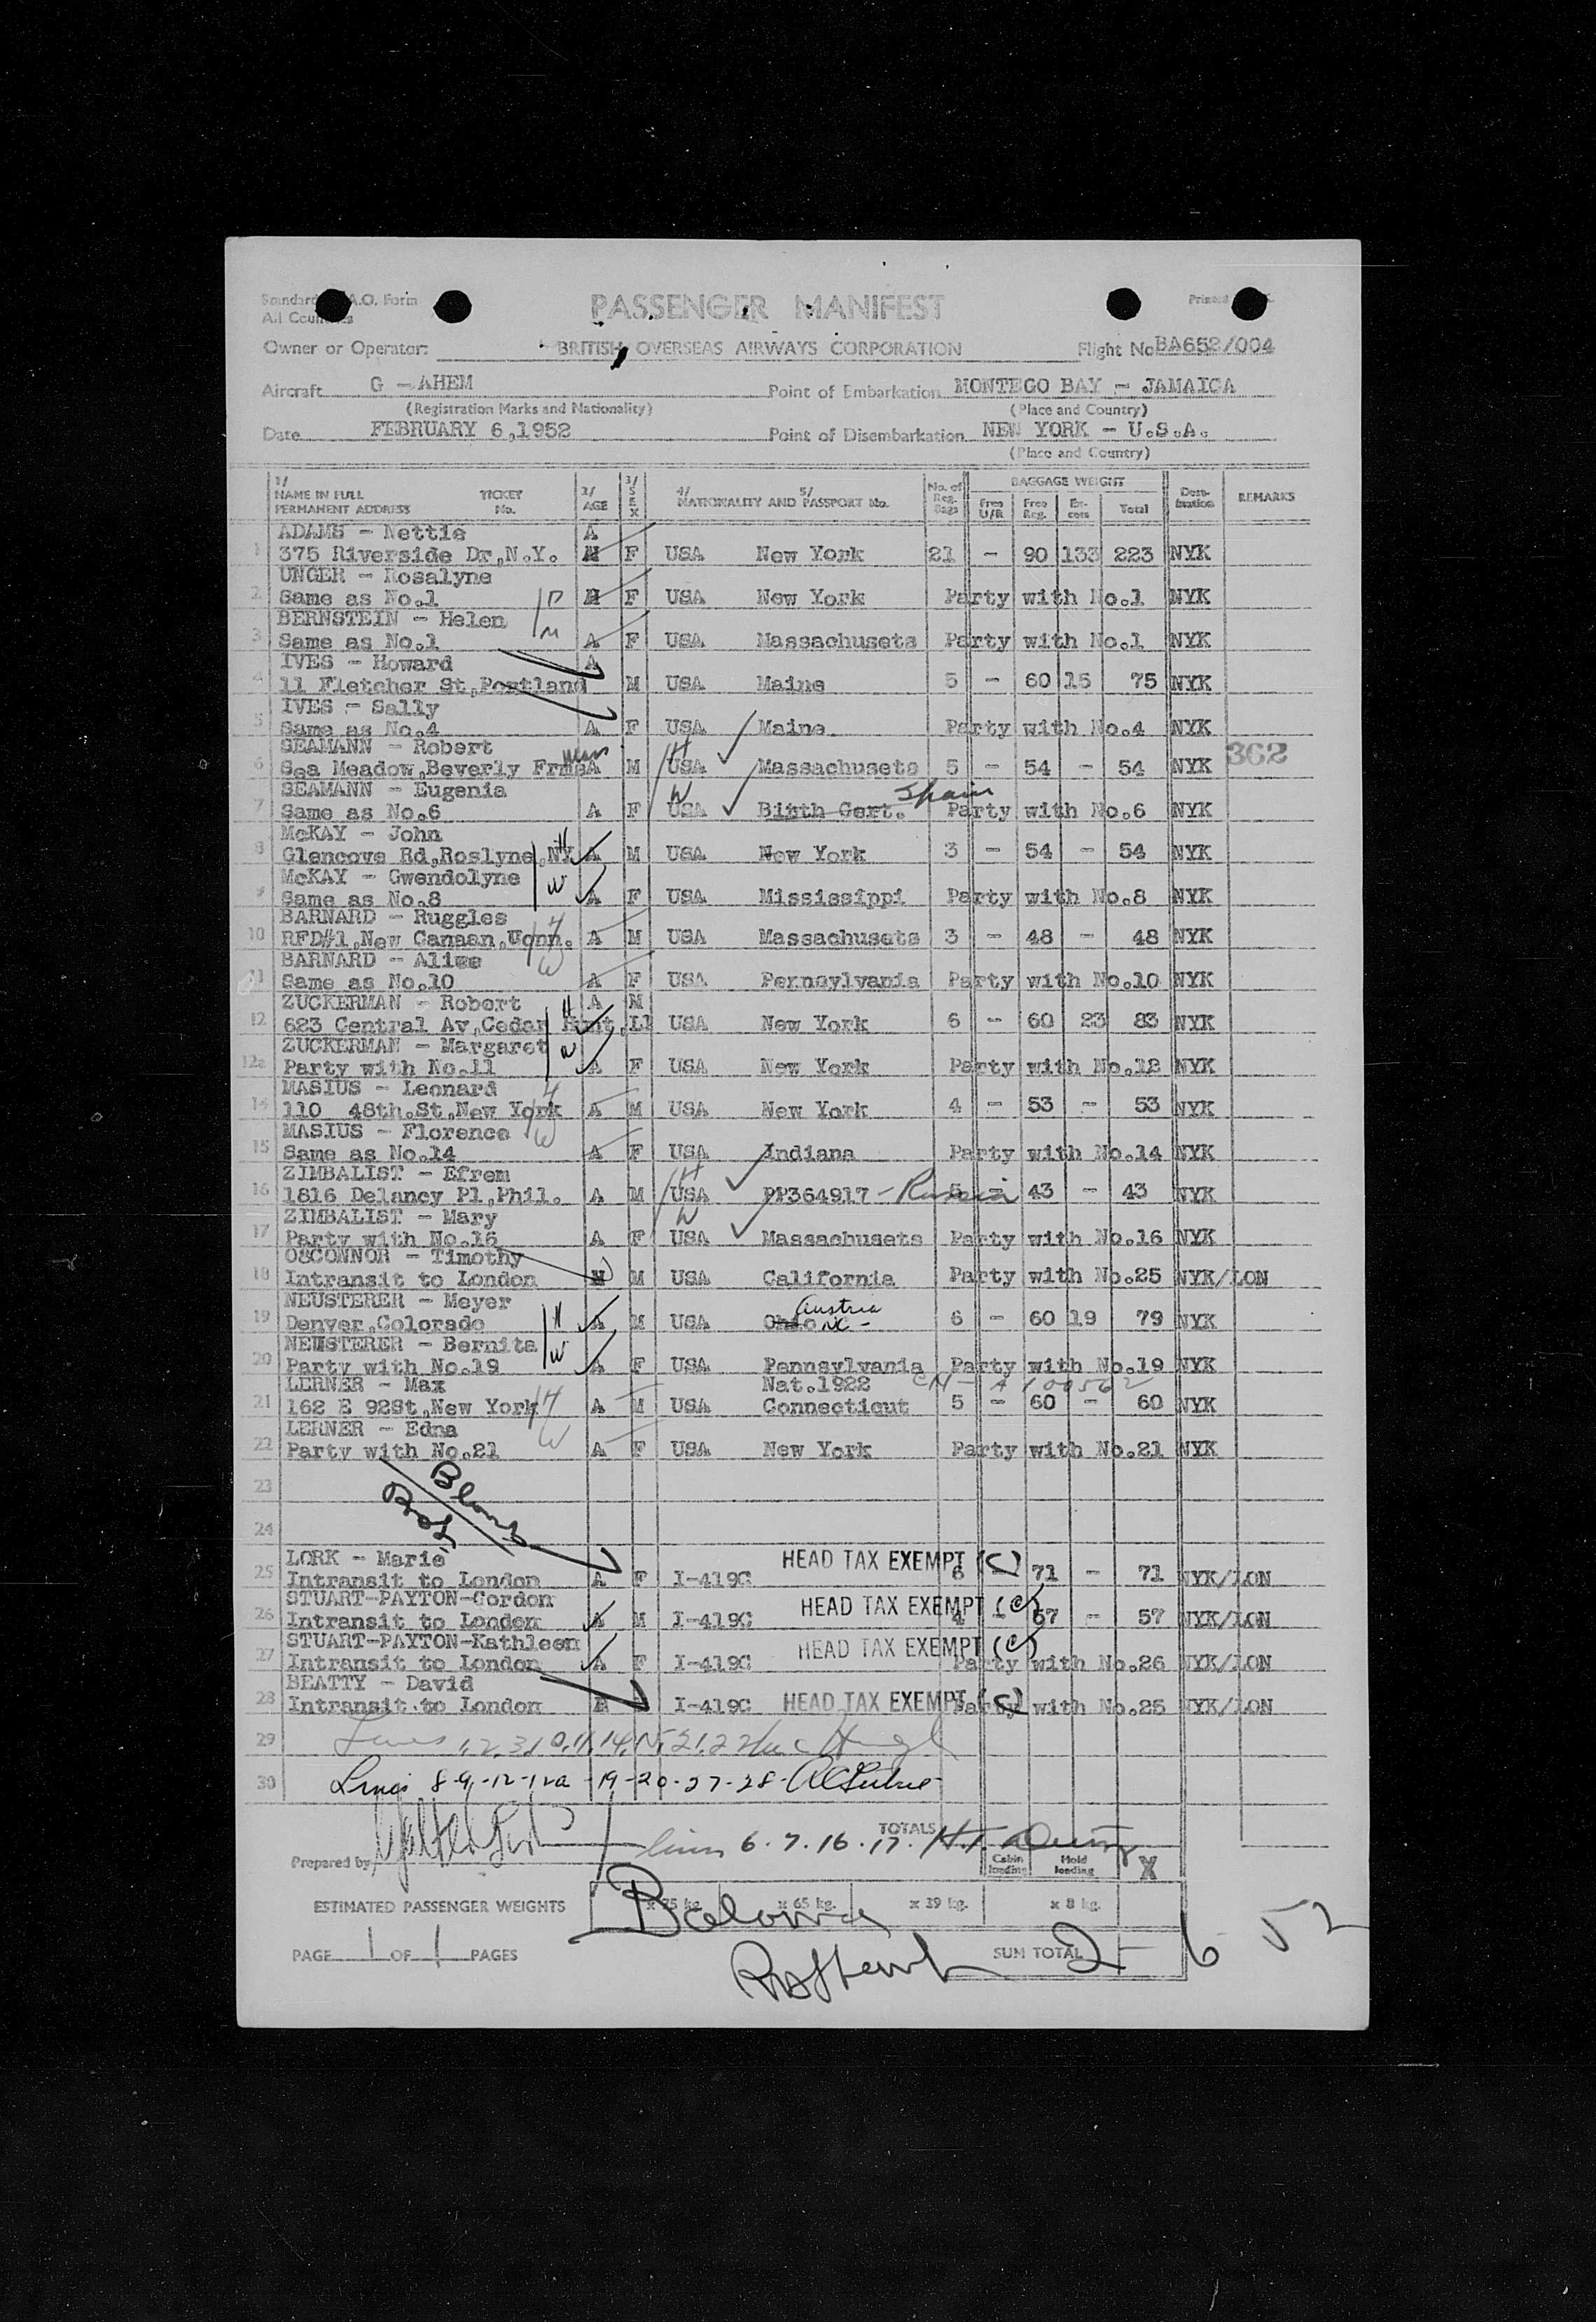 Standard A.O. Form
All Countries
PASSENGER MANIFEST
Printed
Owner or Operator: BRITISH OVERSEAS AIRWAYS CORPORATION Flight No BA652/004
Aircraft G - AHEM Point of Embarkation MONTEGO BAY - JAMAICA
(Registration Marks and Nationality) (Place and Country)
Date FEBRUARY 6,1952 Point of Disembarkation NEW YORK - U.S.A.
(Place and Country)
1/ NAME IN FULL PERMANENT ADDRESS TICKET No. 2/ AGE 3/ SEX 4/ 5/ NATIONALITY AND PASSPORT No. No. of Reg. Bags BAGGAGE WEIGHT Free U/R Free Reg. Ex-cess Total Dest-ination REMARKS
ADAMS - Nettie A
1 375 Riverside Dr,N.Y. F USA New York 21 - 90 133 223 NYK
UNGER - Rosalyne
2 Same as No.1 F USA New York Party with No.1 NYK
BERNSTEIN - Helen
3 Same as No.1 A F USA Massachusets Party with No.1 NYK
IVES - Howard A
4 11 Fletcher St,Portland M USA Maine 5 - 60 15 75 NYK
IVES - Sally
5 Same as No.4 A F USA Maine Party with No.4 NYK
SEAMANN - Robert H 362
6 Sea Meadow,Beverly Frms A M USA Massachusets 5 - 54 - 54 NYK
SEAMANN - Eugenia W Spain
7 Same as No.6 A F USA Birth Cert. Party with No.6 NYK
McKAY - John H
8 Glencove Rd,Roslyne,NY A M USA New York 3 - 54 - 54 NYK
McKAY - Gwendolyne W
9 Same as No.8 A F USA Mississippi Party with No.8 NYK
BARNARD - Ruggles H
10 RFD#1,New Canaan,Conn. A M USA Massachusets 3 - 48 - 48 NYK
BARNARD - Alice W
11 Same as No.10 A F USA Pennsylvania Party with No.10 NYK
ZUCKERMAN - Robert H A M
12 623 Central Av,Cedar Hurst,LI USA New York 6 - 60 23 83 NYK
ZUCKERMAN - Margaret W
12a Party with No.11 A F USA New York Party with No.12 NYK
MASIUS - Leonard H
14 110 48th.St,New York A M USA New York 4 - 53 - 53 NYK
MASIUS - Florence W
15 Same as No.14 A F USA Indiana Party with No.14 NYK
ZIMBALIST - Efrem H
16 1816 Delancy Pl,Phil. A M USA PP364917 - Russia 5 - 43 - 43 NYK
ZIMBALIST - Mary W
17 Party with No.16 A F USA Massachusets Party with No.16 NYK
O&CONNOR - Timothy
18 Intransit to London M USA California Party with No.25 NYK/LON
NEUSTERER - Meyer H Austria
19 Denver,Colorado A M USA Ohio NC - 6 - 60 19 79 NYK
NEUSTERER - Bernita W
20 Party with No.19 A F USA Pennsylvania Party with No.19 NYK
LERNER - Max Nat.1922 CN - A 100562
21 162 E 92St,New York H A M USA Connecticut 5 - 60 - 60 NYK
LERNER - Edna W
22 Party with No.21 A F USA New York Party with No.21 NYK
23
24
LORK - Marie HEAD TAX EXEMPT (C)
25 Intransit to London A F I-419C 6 71 - 71 NYK/LON
STUART-PAYTON-Gordon HEAD TAX EXEMPT (C)
26 Intransit to London A M I-419C 4 - 57 - 57 NYK/LON
STUART-PAYTON-Kathleen HEAD TAX EXEMPT (C)
27 Intransit to London A F I-419C Party with No.26 NYK/LON
BEATTY - David
28 Intransit to London I-419C HEAD TAX EXEMPT (C) Party with No.25 NYK/LON
29 Lines 1,2,3,10,11,14,15,21,22
30 Lines 8-9-12-12a-19-20-27-28-
Prepared by
TOTALS
lines 6.7.16.17.
Cabin loading Hold loading X
ESTIMATED PASSENGER WEIGHTS x 75 kg. x 65 kg. x 39 kg. x 8 kg.
PAGE 1 OF 1 PAGES SUM TOTAL
2-6 52